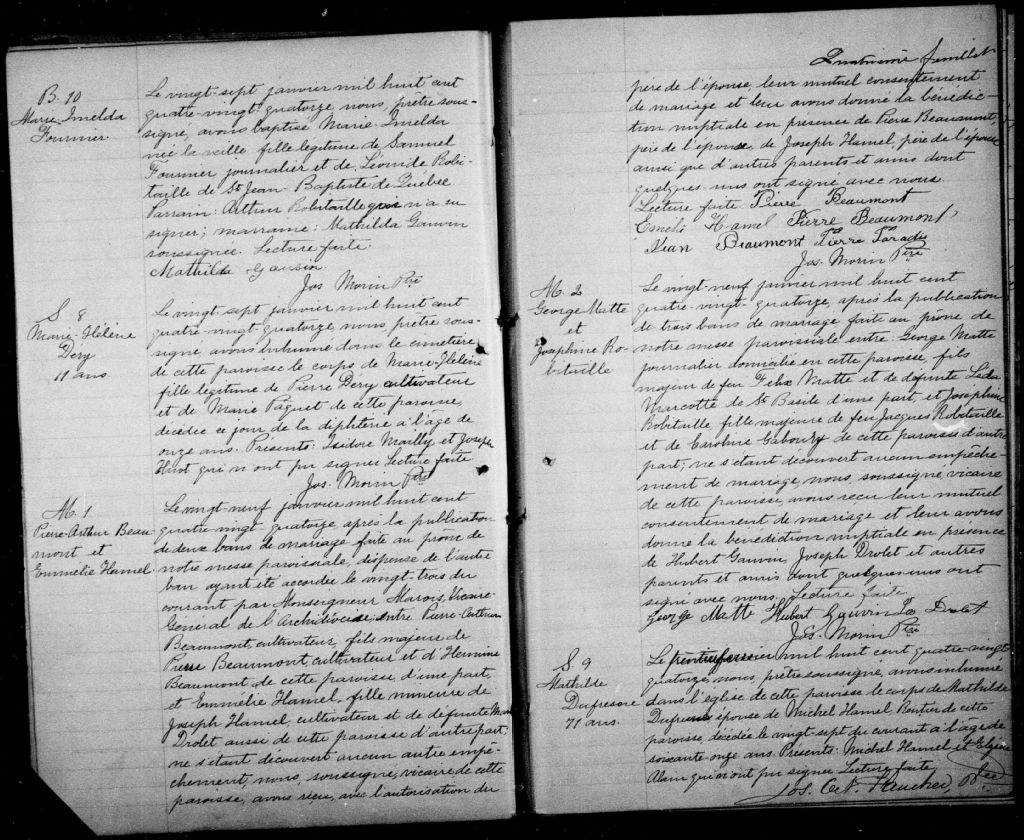 B. 10
Marie-Imelda
Fournier
Le vingt-sept janvier mil huit cent
quatre-vingt-quatorze nous, prêtre sous-
signé, avons baptisé Marie-Imelda
née la veille fille légitime de Samuel
Fournier journalier et de Léonide Robi-
taille de St Jean-Baptiste de Québec
Parrain: Arthur Robitaille qui n'a su
signer; marraine: Mathilda Gauvin
soussignée. Lecture faite.
Mathilda Gauvin
Jos Morin Ptre
S 8
Marie-Hélène
Dery
11 ans
Le vingt-sept janvier mil huit cent
quatre-vingt-quatorze, nous, prêtre sous-
signé avons inhumé dans le cimetière
de cette paroisse le corps de Marie-Hélène
fille légitime de Pierre Dery cultivateur
et de Marie Paquet de cette paroisse,
décédée ce jour de la diphtérie à l'âge de
onze ans. Présents: Isidore Mailly et Joseph
Huot qui n'ont pu signer Lecture faite
Jos. Morin Ptre
M. 1
Pierre-Arthur Beau
mont et
Emmélie Hamel
Le vingt-neuf janvier mil huit cent
quatre-vingt-quatorze, après la publication
de deux bans de mariage faite au prône de
notre messe paroissiale, dispense de l'autre
ban ayant été accordée le vingt-trois du
courant par Monseigneur Marois, Vicaire-
Général de l'Archidiocèse entre Pierre-Arthur
Beaumont, cultivateur, fils majeur de
Pierre Beaumont, cultivateur et d'Hermine
Beaumont de cette paroisse, d'une part,
et Emmélie Hamel, fille mineure de
Joseph Hamel, cultivateur et de défunte Marie
Drolet aussi de cette paroisse d'autre part;
ne s'étant découvert aucun autre empê-
chement, nous, soussigné, vicaire de cette
paroisse, avons reçu, avec l'autorisation du
feuillet
père de l'épouse, leur mutuel consentement
de mariage et leur avons donné la bénédic-
tion nuptiale en présence de Pierre Beaumont,
père de l'époux, de Joseph Hamel, père de l'épouse
ainsi que d'autres parents et amis dont
quelques-uns ont signé avec nous.
Lecture faite Pierre Beaumont
Emeli Hamel Pierre Beaumont,
Jean Beaumont Pierre Paradis
Jos. Morin Ptre
M. 2
George Matte
et
Joséphine Ro-
bitaille
Le vingt-neuf janvier mil huit cent
quatre-vingt-quatorze, après la publication
de trois bans de mariage faite au prône de
notre messe paroissiale entre George Matte
journalier domicilié en cette paroisse, fils
majeur de feu Félix Matte et de défunte Léda
Marcotte de St Basile d'une part, et Joséphine
Robitaille, fille majeure de feu Jacques Robitaille
et de Caroline Gaboury de cette paroisse d'autre
part; ne s'étant découvert aucun empêche-
ment de mariage, nous, soussigné, vicaire
de cette paroisse, avons reçu leur mutuel
consentement de mariage et leur avons
donné la bénédiction nuptiale en présence
de Hubert Gauvin, Joseph Drolet et autres
parents et amis dont quelques-uns ont
signé avec nous. Lecture faite
George Matt Hubert Gauvin Drolet
Jos. Morin Ptre
S 9
Mathilde
Dufresne
71 ans.
Le mil huit cent quatre-vingt-
quatorze, nous, prêtre soussigné, avons inhumé
dans l'église de cette paroisse le corps de Mathilde
Dufresne épouse de Michel Hamel Rentier de cette
paroisse décédée le vingt-sept du courant à l'âge de
soixante-onze ans. Présents: Michel Hamel et
Alain qui n'ont pu signer. Lecture faite
Jos.